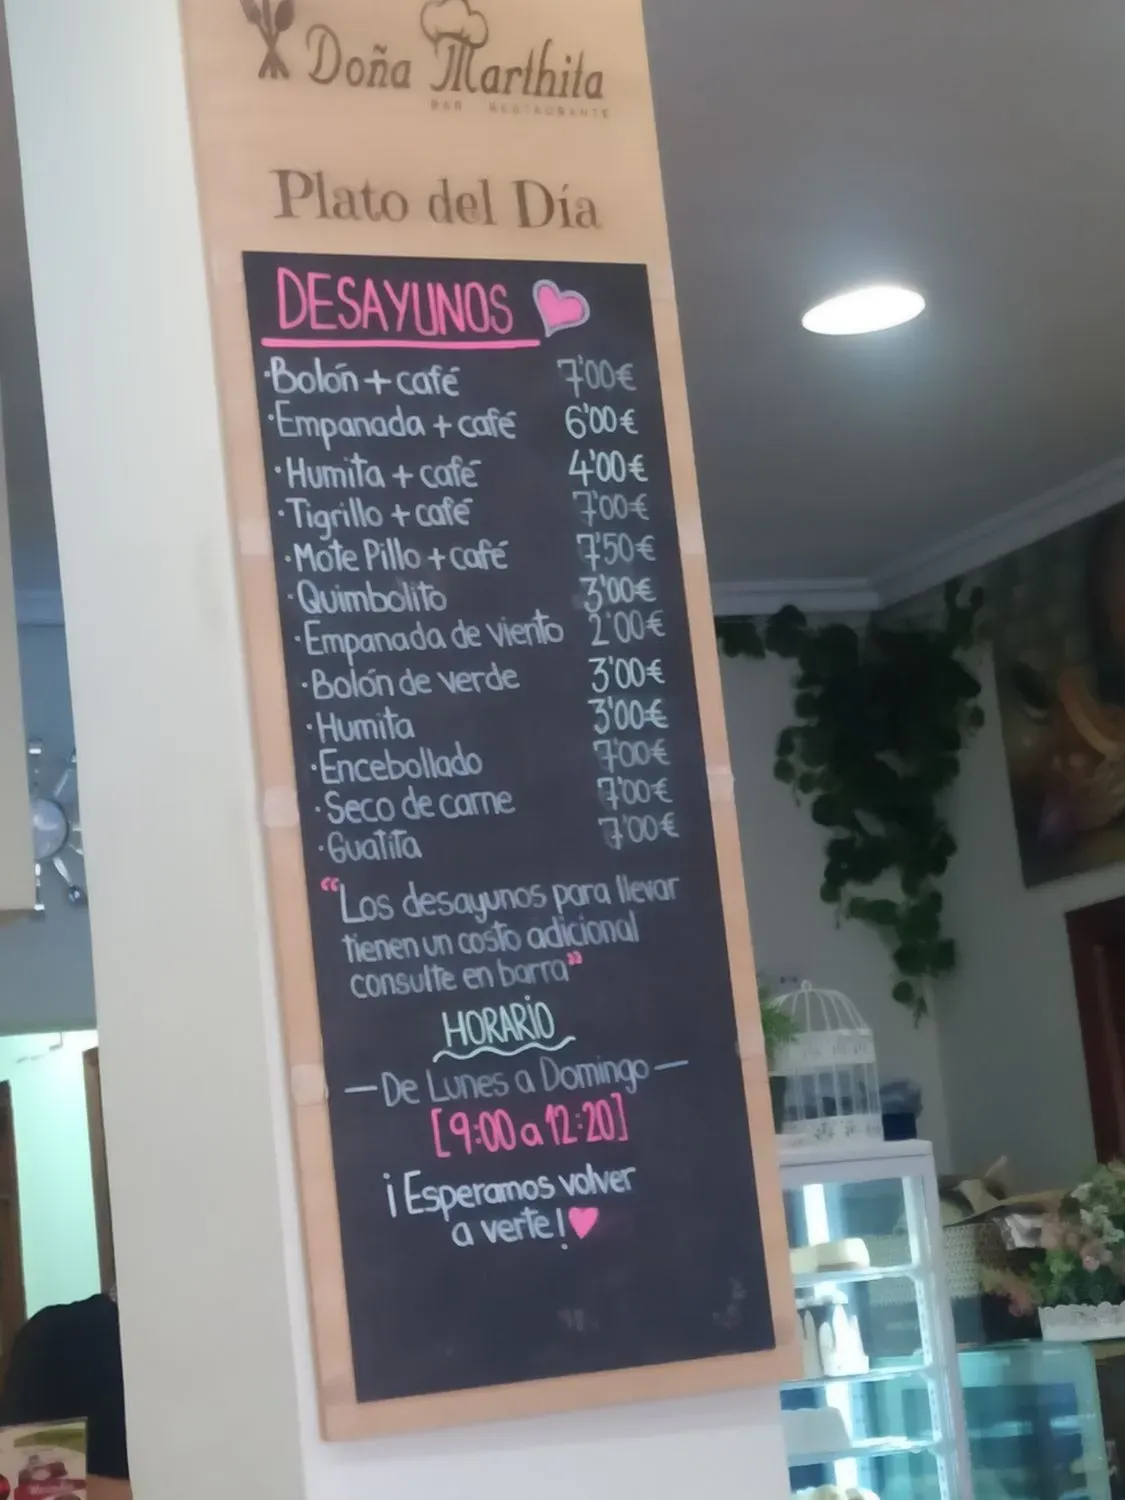 Doña Marthita
BAR RESTAURANTE
Plato del Día
DESAYUNOS
·Bolón + café 7'00€
·Empanada + café 6'00€
·Humita + café 4'00€
·Tigrillo + café 7'00€
·Mote Pillo + café 7'50€
·Quimbolito 3'00€
·Empanada de viento 2'00€
·Bolón de verde 3'00€
·Humita 3'00€
·Encebollado 7'00€
·Seco de carne 7'00€
·Guatita 7'00€
"Los desayunos para llevar
tienen un costo adicional
consulte en barra"
HORARIO
—De Lunes a Domingo—
[9:00 a 12:20]
¡Esperamos volver
a verte!